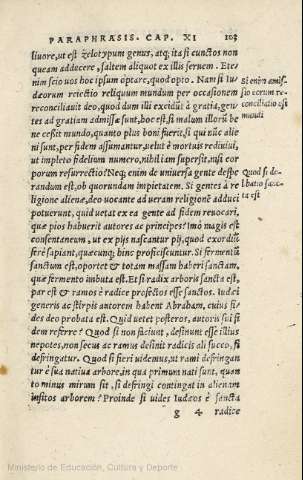 PARAPHRASIS. CAP. XI 103
liuore, ut est ζelotypum genus, atq; ita si cunctos non
queam adducere, saltem aliquot ex illis seruem. Ete=
nim scio uos hoc ipsum optare, quod opto. Nam si Iu=
dæorum reiectio reliquum mundum per occasionem
reconciliauit deo, quod dum illi excidūt à gratia, gen=
tes ad gratiam admissæ sunt, hoc est, si malum illorū be
ne cessit mundo, quanto plus boni fierit, si qui nūc alie
ni sunt, per fidem assumantur, uelut è mortuis rediuiui,
ut impleto fidelium numero, nihil iam supersit, nisi cor
porum resurrectio? Neq; enim de uniuersa gente despe
randum est, ob quorundam impietatem. Si gentes à re
ligione aliena, deo uocante ad ueram religionē adduci
potuerunt, quid uetat ex ea gente ad fidem reuocari,
quæ pios habuerit autores ac principes? Imò magis est
consentaneum, ut ex pijs nascantur pij, quod exordiū
ferè sapiant, quæcunq; hinc proficiscuntur. Si fermentū
sanctum est, oportet & totam massam haberi sanctam,
quæ fermento imbuta est. Et si radix arboris sancta est,
par est & ramos è radice profectos esse sanctos. Iudæi
generis ac stirpis autorem habent Abraham, cuius fi=
des deo probata est. Quid uetat posteros, autoris sui fi
dem referre? Quod si non faciunt, desinunt esse illius
nepotes, non secus ac ramus desinit radicis ali succo, si
defringatur. Quod si fieri uidemus, ut rami defringan
tur è sua natiua arbore, in qua primum nati sunt, quan
to minus mirum sit, si defringi contingat in alienam
insitos arborem? Proinde si uides Iudæos è sancta
g 4 radice
Si enim amis=
sio eorum re=
conciliatio est
mundi
Quòd si de=
libatio sanc=
ta est
Ministerio de Educación, Cultura y Deporte